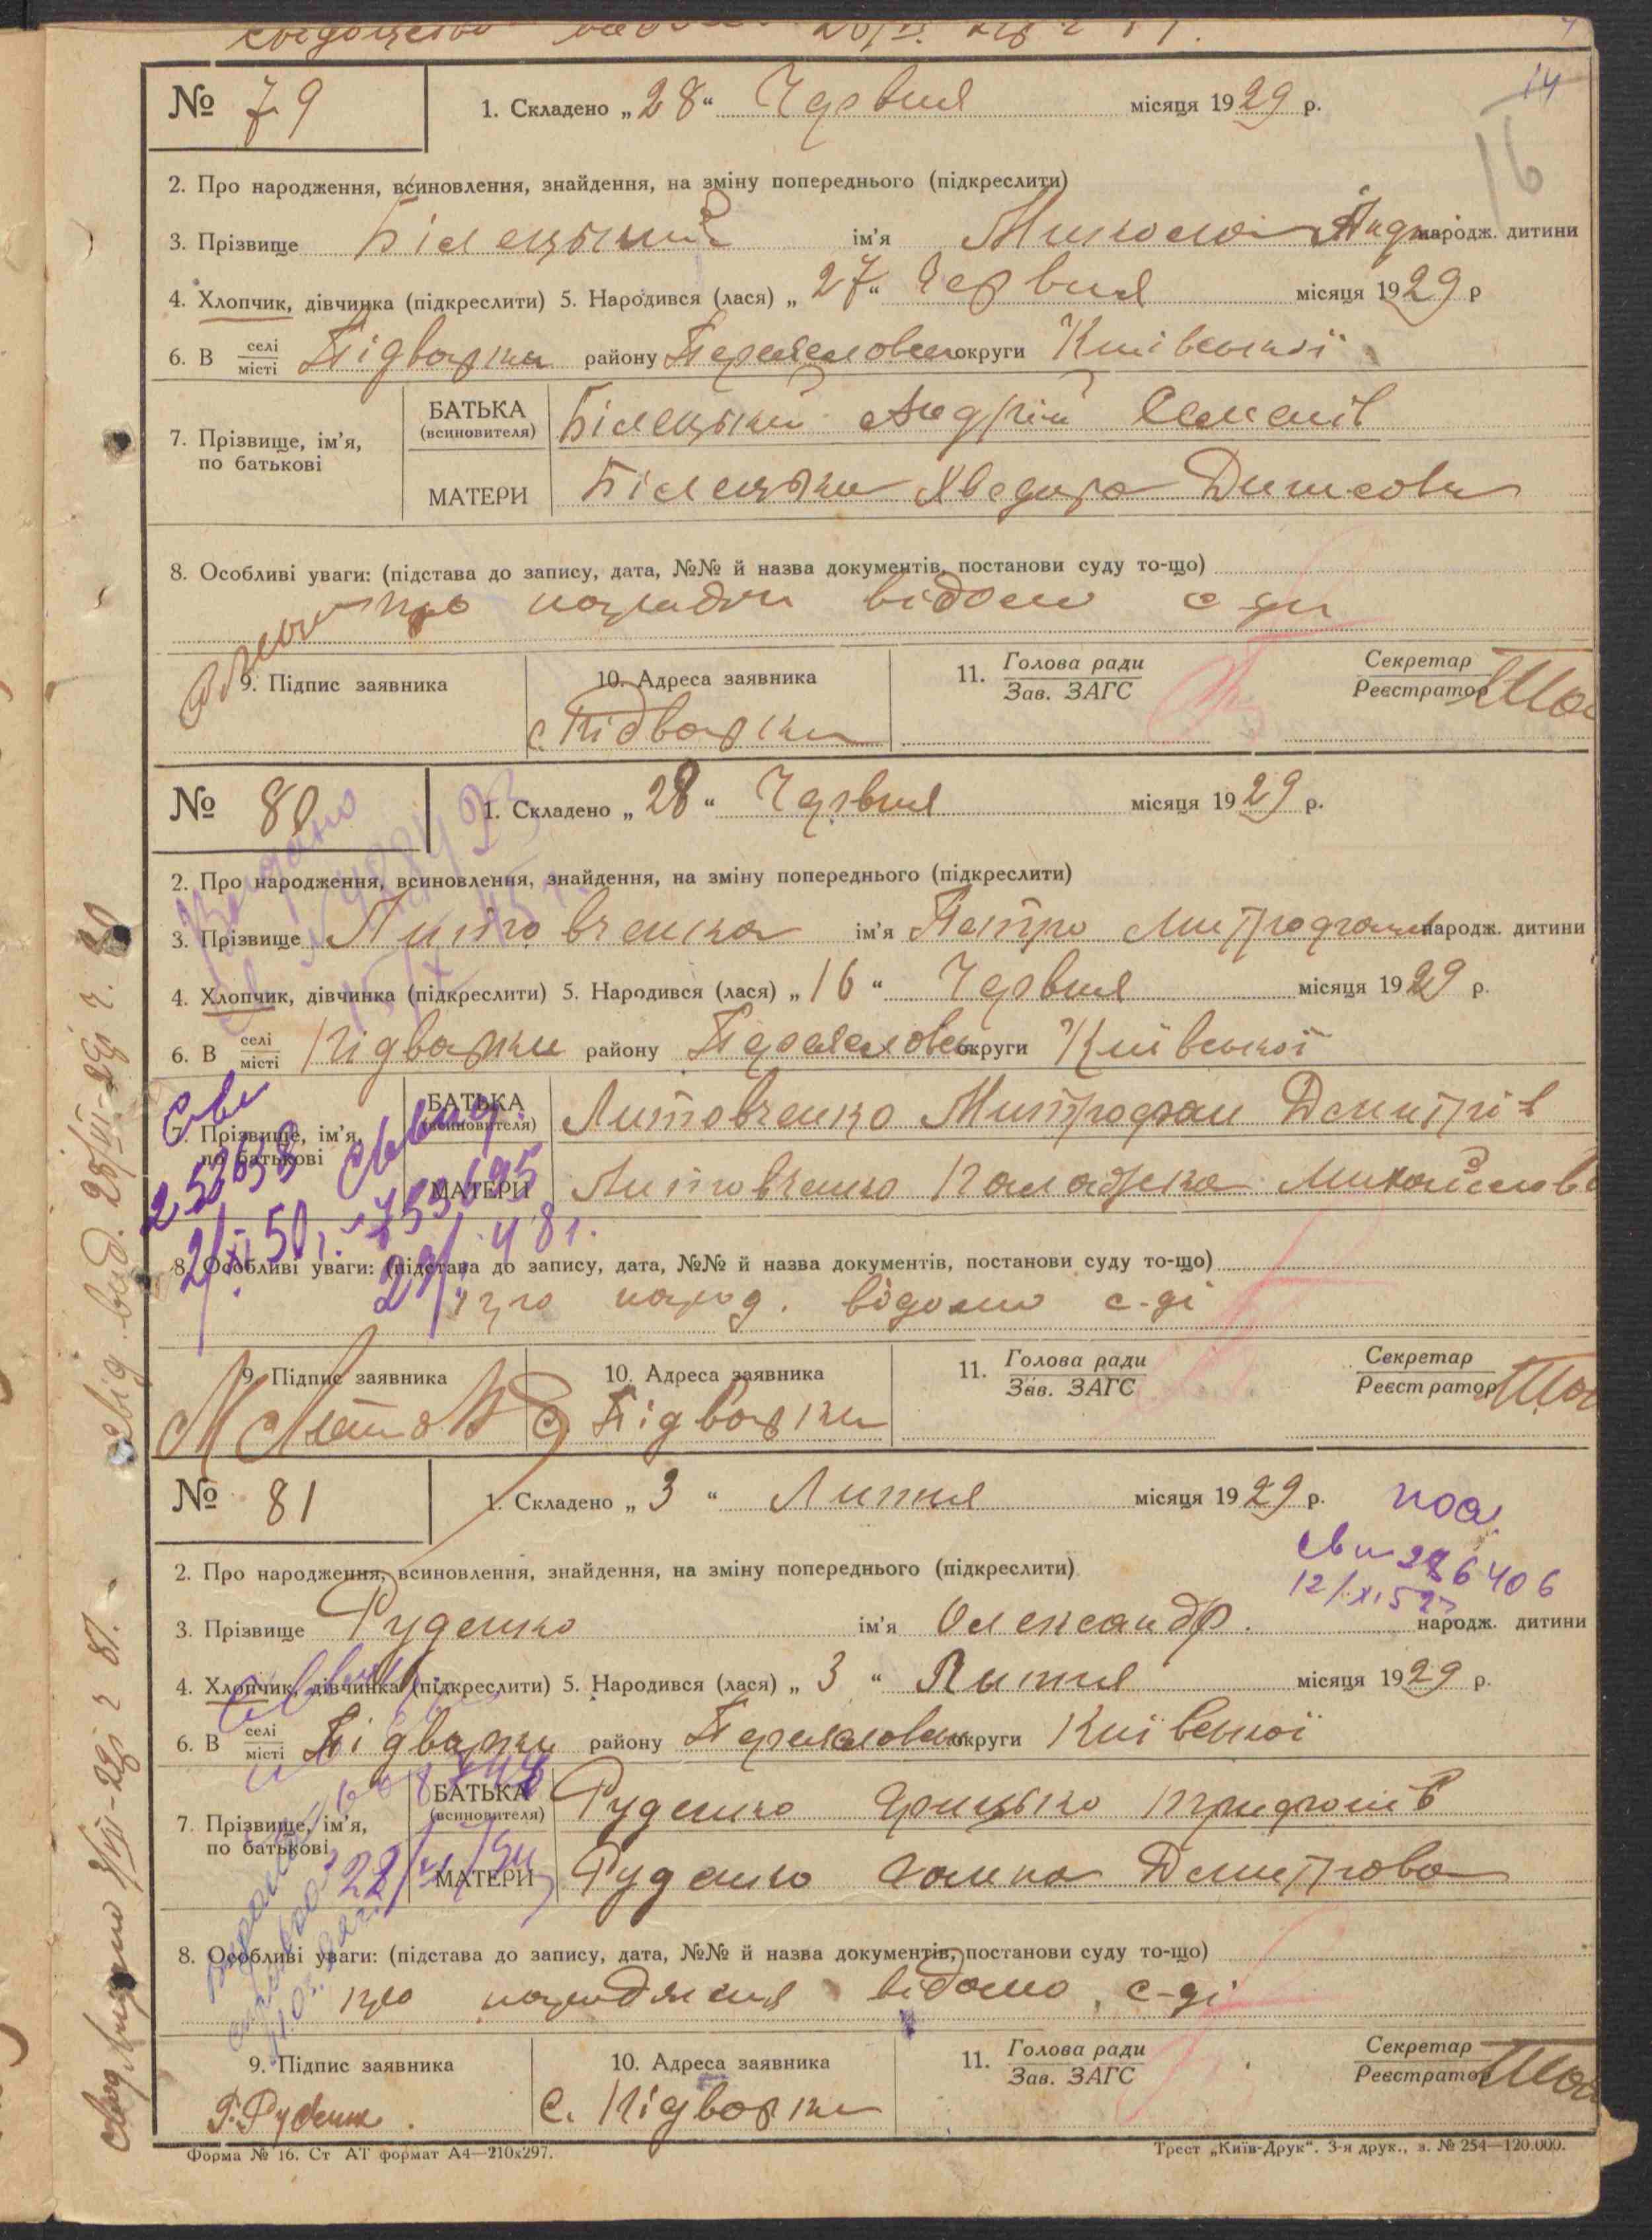 14
16
№ 79
1. Складено „28“ Червня місяця 1929 р.
2. Про народження, всиновлення, знайдення, на зміну попереднього (підкреслити)
3. Прізвище Білецький ім'я Микола Андр народж. дитини
4. Хлопчик, дівчинка (підкреслити) 5. Народився (лася) „27“ Червня місяця 1929 р
6. В селі місті Підварки району Переясловськ округи Київської
7. Прізвище, ім'я, по батькові
БАТЬКА (всиновителя) Білецький Андрій Семенів
МАТЕРИ Білецька Хведора Денисова
8. Особливі уваги: (підстава до запису, дата, №№ й назва документів, постанови суду то-що)
про народж відомо с-ді
9. Підпис заявника
10. Адреса заявника
с. Підварки
11. Голова ради
Зав. ЗАГС
Секретар
Реєстратор
№ 80
1. Складено „28“ Червня місяця 1929 р.
2. Про народження, всиновлення, знайдення, на зміну попереднього (підкреслити)
3. Прізвище Литовченко ім'я Петро Митрофанів народж. дитини
4. Хлопчик, дівчинка (підкреслити) 5. Народився (лася) „16“ Червня місяця 1929 р.
6. В селі місті Підварки району Переясловськ округи Київської
7. Прізвище, ім'я, по батькові
БАТЬКА (всиновителя) Литовченко Митрофан Демитрів
МАТЕРИ Литовченко Палажка Михайлов
8. Особливі уваги: (підстава до запису, дата, №№ й назва документів, постанови суду то-що)
про народ. відомо с-ді
9. Підпис заявника
10. Адреса заявника
с Підварки
11. Голова ради
Зав. ЗАГС
Секретар
Реєстратор
№ 81
1. Складено „3“ Липня місяця 1929 р.
2. Про народження, всиновлення, знайдення, на зміну попереднього (підкреслити)
12/XI 52
3. Прізвище Руденко ім'я Олександр. народж. дитини
4. Хлопчик, дівчинка (підкреслити) 5. Народився (лася) „3“ Липня місяця 1929 р.
6. В селі місті Підварки району Переясловськ округи Київської
7. Прізвище, ім'я, по батькові
БАТЬКА (всиновителя) Руденко Грицько Трифонів
МАТЕРИ Руденко Ганна Демитрова
8. Особливі уваги: (підстава до запису, дата, №№ й назва документів, постанови суду то-що)
про народження відомо с-ді
9. Підпис заявника
Г. Руденк
10. Адреса заявника
с. Підварки
11. Голова ради
Зав. ЗАГС
Секретар
Реєстратор
Форма № 16. Ст АТ формат А4—210х297.
Трест „Київ-Друк“. 3-я друк., з. № 254—120.000.